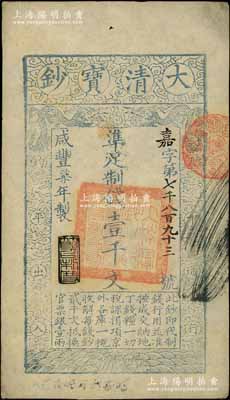 上海陽明拍賣
鈔寶清大
嘉字第七千八百九十三號
準足制錢壹千文
咸豐柒年製
此鈔即代制
錢行用並准
按成交納地
丁錢糧一切
稅課捐項京
外各庫一概
收解每錢鈔
貳千文抵換
官票銀壹兩
平
出
入
上海陽明拍賣